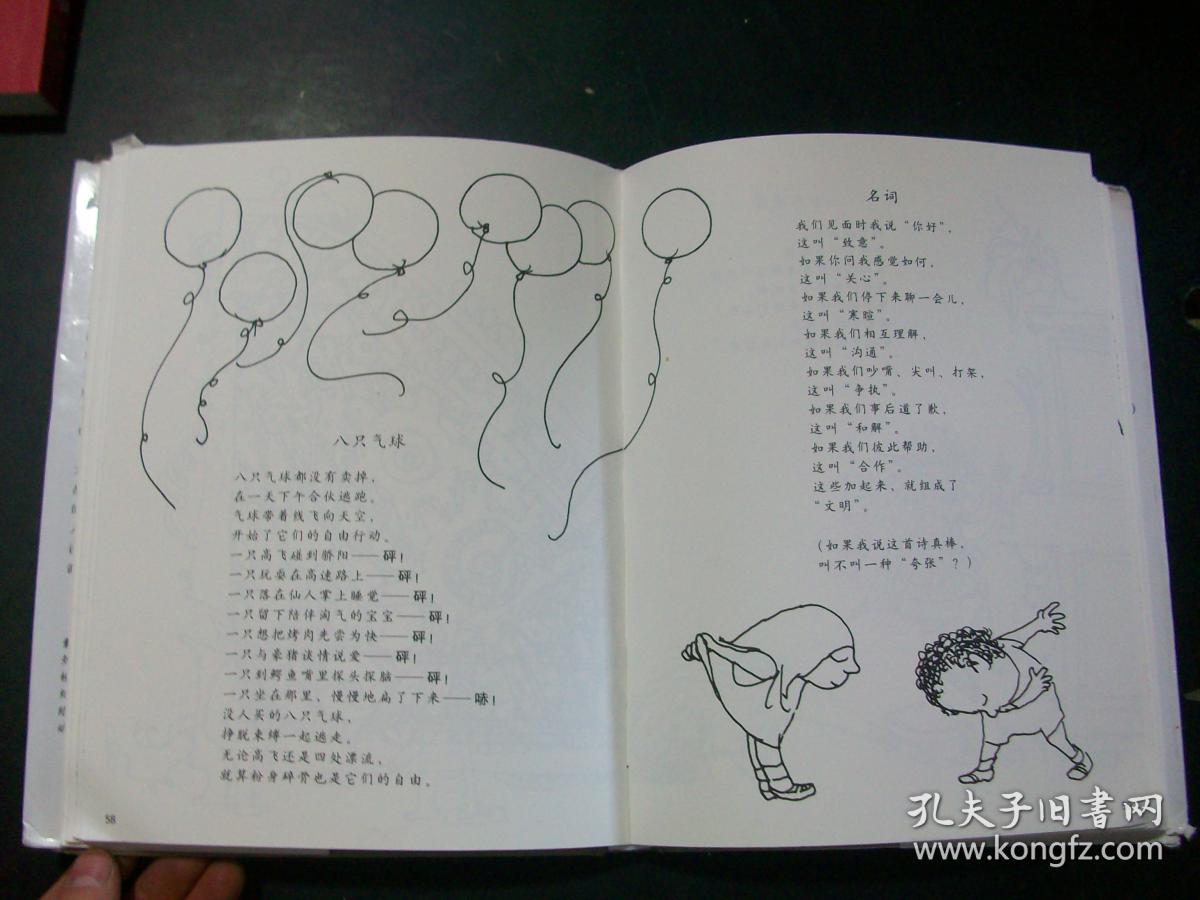 八只气球
八只气球都没有卖掉，
在一天下午合伙逃跑。
气球带着线飞向天空，
开始了它们的自由行动。
一只高飞碰到骄阳——砰！
一只玩耍在高速路上——砰！
一只落在仙人掌上睡觉——砰！
一只留下陪伴淘气的宝宝——砰！
一只想把烤肉先尝为快——砰！
一只与豪猪谈情说爱——砰！
一只到鳄鱼嘴里探头探脑——砰！
一只坐在那里、慢慢地扁了下来——哧！
没人买的八只气球，
挣脱束缚一起逃走。
无论高飞还是四处漂流，
就算粉身碎骨也是它们的自由。
58
名词
我们见面时我说“你好”，
这叫“致意”。
如果你问我感觉如何，
这叫“关心”。
如果我们停下来聊一会儿，
这叫“寒暄”。
如果我们相互理解，
这叫“沟通”。
如果我们吵嘴、尖叫、打架，
这叫“争执”。
如果我们事后道了歉，
这叫“和解”。
如果我们彼此帮助，
这叫“合作”。
这些加起来，就组成了
“文明”。
（如果我说这首诗真棒，
叫不叫一种“夸张”？）
孔夫子旧书网
www.kongfz.com